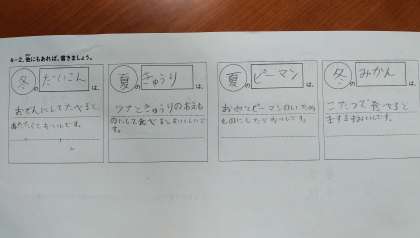 4-2. 他にもあれば、書きましょう。
冬の だいこん は、
おでんにしてたべると
あたたくておいしいです。
夏の きゅうり は、
ツナときゅうりのあえも
のにして食べるとおいしいで
す。
夏の ピーマン は、
ものにしたらおいしいです。
冬の みかん は、
こたつで食べると